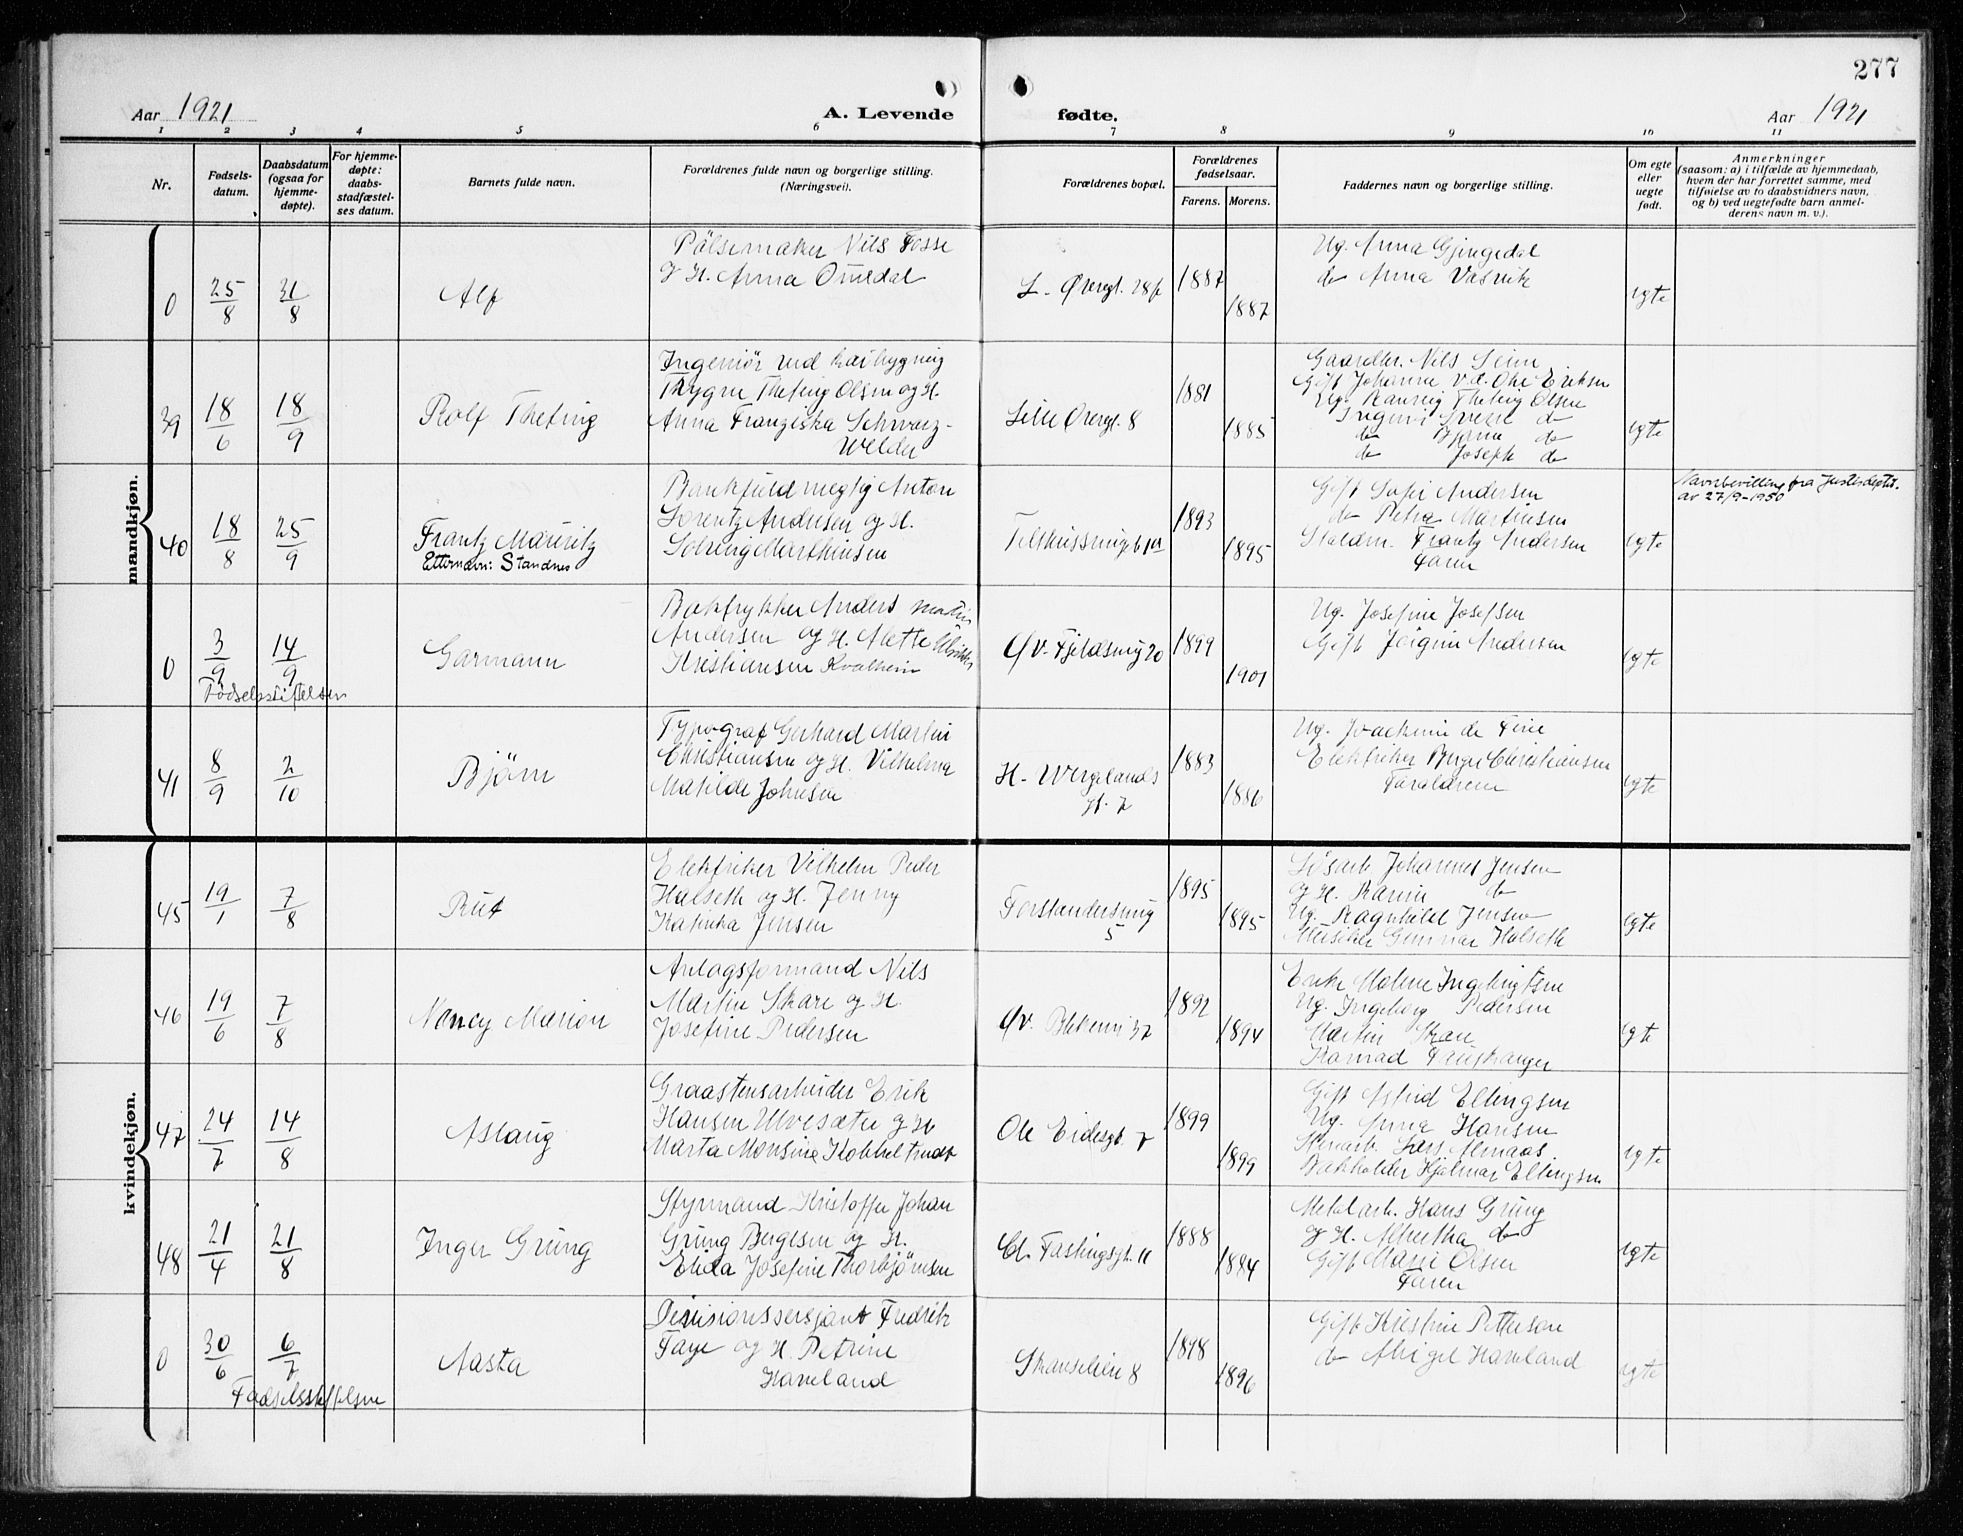 277
Aar 1921
A. Levende
fødte.
Aar 1921
1 2 3 4 5 6 7 8 9 10 11
Nr.
Fødsels-
datum.
Daabsdatum
(ogsaa for
hjemme-
døpte).
For hjemme-
døpte:
daabs-
stadfæstel-
ses datum.
Barnets fulde navn.
Forældrenes fulde navn og borgerlige stilling.
(Næringsvei).
Forældrenes bopæl.
Forældrenes
fødselsaar.
Farens. Morens.
Faddernes navn og borgerlige stilling.
Om egte
eller
uegte
født.
Anmerkninger
(saasom: a) i tilfælde av hjemmedaab,
hvem der har forrettet samme, med
tilføielse av to daabsvidners navn,
og b) ved uegtefødte barn anmel-
derens navn m. v.).
mandkjøn.
0
25/8
31/8
Alf
Pølsemaker Nils Fosse
og H. Anna Omdal
L. Øvregt. 28
1887
1887
Ug. Anna Gjengedal
do Anna Vasvik
egte
39
18/6
18/9
Rolf Theting
Ingeniør ved havbygning
Thygve Theting Olsen og H.
Anna Franziska Schwarz-
Welder
Lille Øvregt. 8
1881
1885
Gaardbr. Nils Seim
Gift Johanne v.d. Ohe Eriksen
Ug. Ranveig Theting Olsen
Ingeniør Sverre do
do Bjarne do
do Joseph do
egte
40
18/8
25/9
Frantz Mauritz
Etternavn: Standnes
Bankfuldmegtig Anton
Lorentz Andersen og H.
Solveig Marthinsen
1893
1895
Gift Sofie Andersen
do Petra Martinsen
Frantz Andersen
Faren
egte
Navnbevilling fra Justisdeptet.
av 27/9-1950
0
3/9
14/9
Fødselsstiftelsen
Garmann
Boktrykker Anders Martin
Andersen og H. Alette Ulrikke
Kristiansen Kvalheim
Øv. Fjeldsmug 20
1899
1901
Ug. Josefine Josefsen
Gift Jørgine Andersen
egte
41
8/9
2/10
Bjørn
Typograf Gerhard Martin
Christiansen og H. Vilhelma
Matilde Johnsen
H. Wergelands
gt. 7
1883
1886
Ug. Joachime de Fine
Elektriker Birger Christiansen
Forældrene
egte
kvindekjøn.
45
19/1
7/8
Rut
Elektriker Vilhelm Peder
Halseth og H. Jenny
Katinka Jensen
Forstandersmug
5
1895
1895
Løsarb. Johannes Jensen
og H. Karine do
Ug. Ragnhild Jensen
Musiker Gunnar Halseth
egte
46
19/6
7/8
Nancy Marion
Anlagsformand Nils
Martin Skare og H.
Josefine Pedersen
Øv. Blekevei 37
1892
1894
Enke Malene Ingebrigtsen
Ug. Ingeborg Pedersen
Martin Skare
Konrad
egte
47
24/7
14/8
Aslaug
Graastensarbeider Erik
Hansen Ulvesæter og H.
Marta Monsine Kobbeltvedt
Ole Eidesgt. 7
1899
1899
Gift Astrid Ellingsen
Ug. Anna Hansen
Stenarb. Lars Almaas
Bokholder Hjalmar Ellingsen
egte
48
21/4
21/8
Inger Grung
Styrmand Kristoffer Johan
Grung Bergesen og H.
Elida Josefine Thorbjørnsen
Cl. Fastingsgt. 11
1888
1884
Mek. arb. Hans Grung
og H. Alvertha do
Gift Marie Olsen
Faren
egte
0
30/6
6/7
Fødselsstiftelsen
Aasta
Divisionssersjant Fredrik
Faye og H. Petrine
Haveland
Skanselien 8
1898
1896
Gift Kristine Petterson
do Abigel Haveland
egte